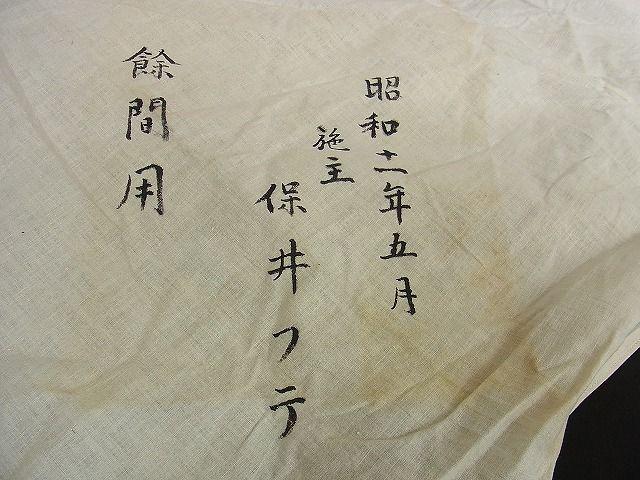 昭和十一年五月
施主
保井フテ
餘間用